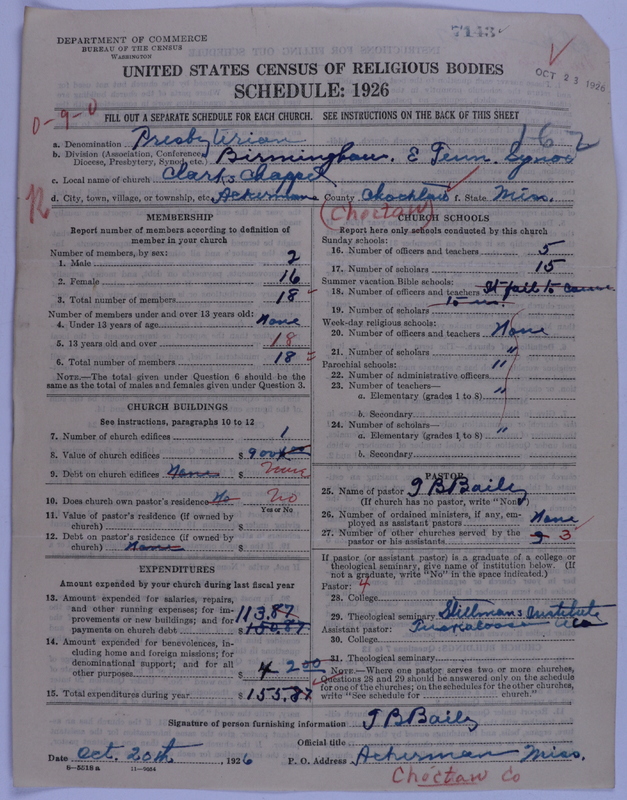 7143
DEPARTMENT OF COMMERCE
BUREAU OF THE CENSUS
WASHINGTON
UNITED STATES CENSUS OF RELIGIOUS BODIES
OCT 23 1926
SCHEDULE: 1926
0-9-0
FILL OUT A SEPARATE SCHEDULE FOR EACH CHURCH. SEE INSTRUCTIONS ON THE BACK OF THIS SHEET
162
a. Denomination Presbyterian
b. Division (Association, Conference, Diocese, Presbytery, Synod, etc.) Birmingham, E Tenn. Synod
c. Local name of church Clarks Chappel
d. City, town, village, or township, etc. Ackerman County Chochtaw f. State Miss.
(Choctaw)
MEMBERSHIP
Report number of members according to definition of
member in your church
Number of members, by sex:
1. Male 2
2. Female 16
3. Total number of members 18
Number of members under and over 13 years old:
4. Under 13 years of age None
5. 13 years old and over 18
6. Total number of members 18
NOTE.—The total given under Question 6 should be
the same as the total of males and females given under Question 3.
CHURCH BUILDINGS
See instructions, paragraphs 10 to 12
7. Number of church edifices 1
8. Value of church edifices $ 900
9. Debt on church edifices None $ None
10. Does church own pastor's residence No No
Yes or No
11. Value of pastor's residence (if owned by
church) $
12. Debt on pastor's residence (if owned by
church) None $
EXPENDITURES
Amount expended by your church during last fiscal year
13. Amount expended for salaries, repairs,
and other running expenses; for im-
provements or new buildings; and for
payments on church debt 113.87 $
14. Amount expended for benevolences, in-
cluding home and foreign missions; for
denominational support; and for all
other purposes $ 42 00
15. Total expenditures during year $ 155.87
CHURCH SCHOOLS
Report here only schools conducted by this church
Sunday schools:
16. Number of officers and teachers 5
17. Number of scholars 15
Summer vacation Bible schools:
18. Number of officers and teachers It fail to came
19. Number of scholars to us.
Week-day religious schools:
20. Number of officers and teachers None
21. Number of scholars "
Parochial schools:
22. Number of administrative officers "
23. Number of teachers—
a. Elementary (grades 1 to 8) "
b. Secondary
24. Number of scholars—
a. Elementary (grades 1 to 8) "
b. Secondary
PASTOR
25. Name of pastor J B Baily
(If church has no pastor, write "None")
26. Number of ordained ministers, if any, em-
ployed as assistant pastors None
27. Number of other churches served by the
pastor or his assistants 3
If pastor (or assistant pastor) is a graduate of a college or
theological seminary, give name of institution below. (If
not a graduate, write "No" in the space indicated.)
Pastor: 4
28. College
29. Theological seminary Stillmans Institute
Assistant pastor: Tuscaloosa Ala
30. College
31. Theological seminary
NOTE.—Where one pastor serves two or more churches,
Questions 28 and 29 should be answered only on the schedule
for one of the churches; on the schedules for the other churches,
write "See schedule for ______ church."
Signature of person furnishing information J B Baily
Official title
Date Oct. 20th, 1926 P. O. Address Ackerman Miss.
8-5518 a 11-9084
Choctaw Co